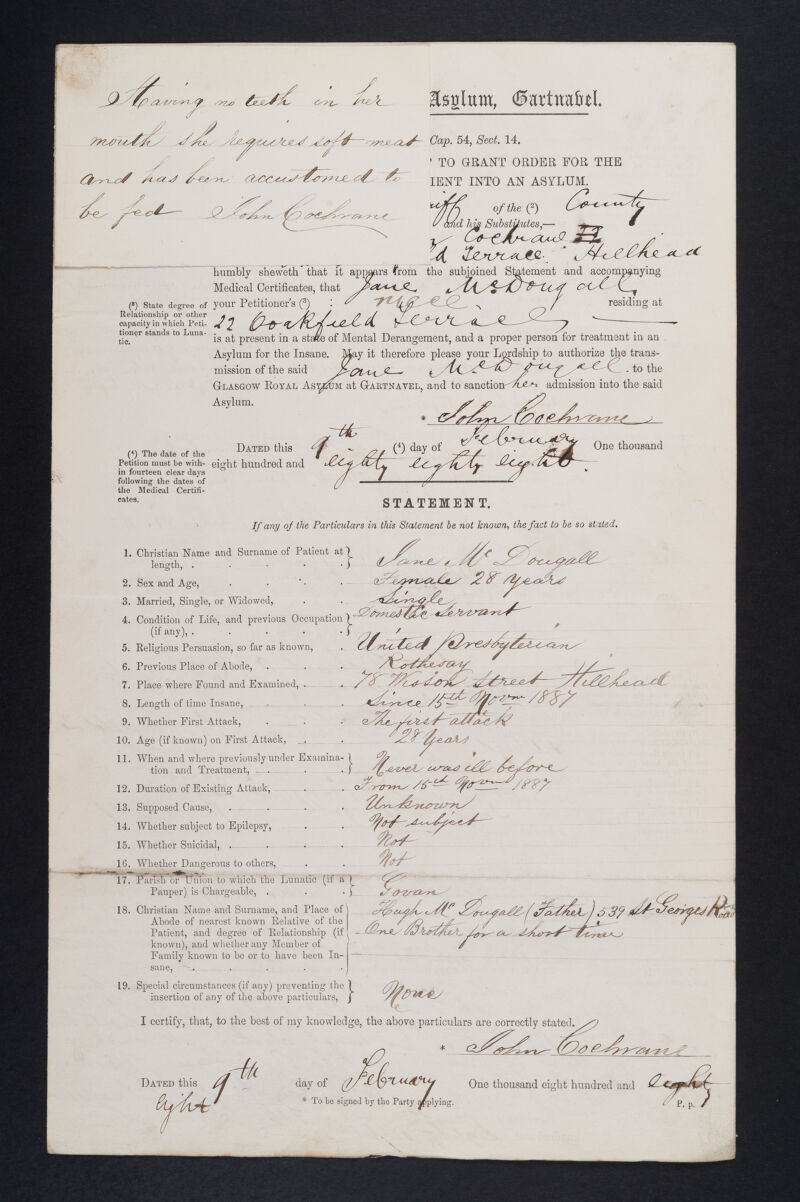 Having no teeth in her
mouth she requires soft meat
and has been accustomed to
be fed John Cochrane
Asylum, Gartnavel.
Cap. 54, Sect. 14.
TO GRANT ORDER FOR THE
IENT INTO AN ASYLUM.
iff of the (²) County
and his Substitutes,—
Cochrane 22
d Terrace Hillhead
humbly sheweth that it appears from the subjoined Statement and accompanying
Medical Certificates, that Jane McDougall
(³) State degree of Relationship or other capacity in which Petitioner stands to Lunatic.
your Petitioner's (³) : niece residing at
22 Oakfield Terrace
is at present in a state of Mental Derangement, and a proper person for treatment in an
Asylum for the Insane. May it therefore please your Lordship to authorize the trans-
mission of the said Jane McDougall. to the
GLASGOW ROYAL ASYLUM at GARTNAVEL, and to sanction her admission into the said
Asylum.
* John Cochrane
(⁴) The date of the Petition must be within fourteen clear days following the dates of the Medical Certificates.
DATED this 9th (⁴) day of February One thousand
eight hundred and eighty eighty eight.
STATEMENT.
If any of the Particulars in this Statement be not known, the fact to be so stated.
1. Christian Name and Surname of Patient at length, . Jane Mc Dougall
2. Sex and Age, Female 28 Years
3. Married, Single, or Widowed, Single
4. Condition of Life, and previous Occupation (if any), . Domestic Servant
5. Religious Persuasion, so far as known, United Presbyterian
6. Previous Place of Abode, Rothesay
7. Place where Found and Examined, 78 Street Hillhead
8. Length of time Insane, Since 15th Novm 1887
9. Whether First Attack, The first attack
10. Age (if known) on First Attack, 28 Years
11. When and where previously under Examina-
tion and Treatment, Never was ill before
12. Duration of Existing Attack, From 15th Novm 1887
13. Supposed Cause, Unknown
14. Whether subject to Epilepsy, Not subject
15. Whether Suicidal, Not
16. Whether Dangerous to others, Not
17. Parish or Union to which the Lunatic (if a
Pauper) is Chargeable, Govan
18. Christian Name and Surname, and Place of Hugh Mc Dougall (Father) 539 St Georges Road
Abode of nearest known Relative of the One Brother for a short time
Patient, and degree of Relationship (if
known), and whether any Member of
Family known to be or to have been In-
sane,
19. Special circumstances (if any) preventing the
insertion of any of the above particulars, None
I certify, that, to the best of my knowledge, the above particulars are correctly stated.
* John Cochrane
DATED this 9th day of February One thousand eight hundred and eighty
eight
* To be signed by the Party applying.
P. p.